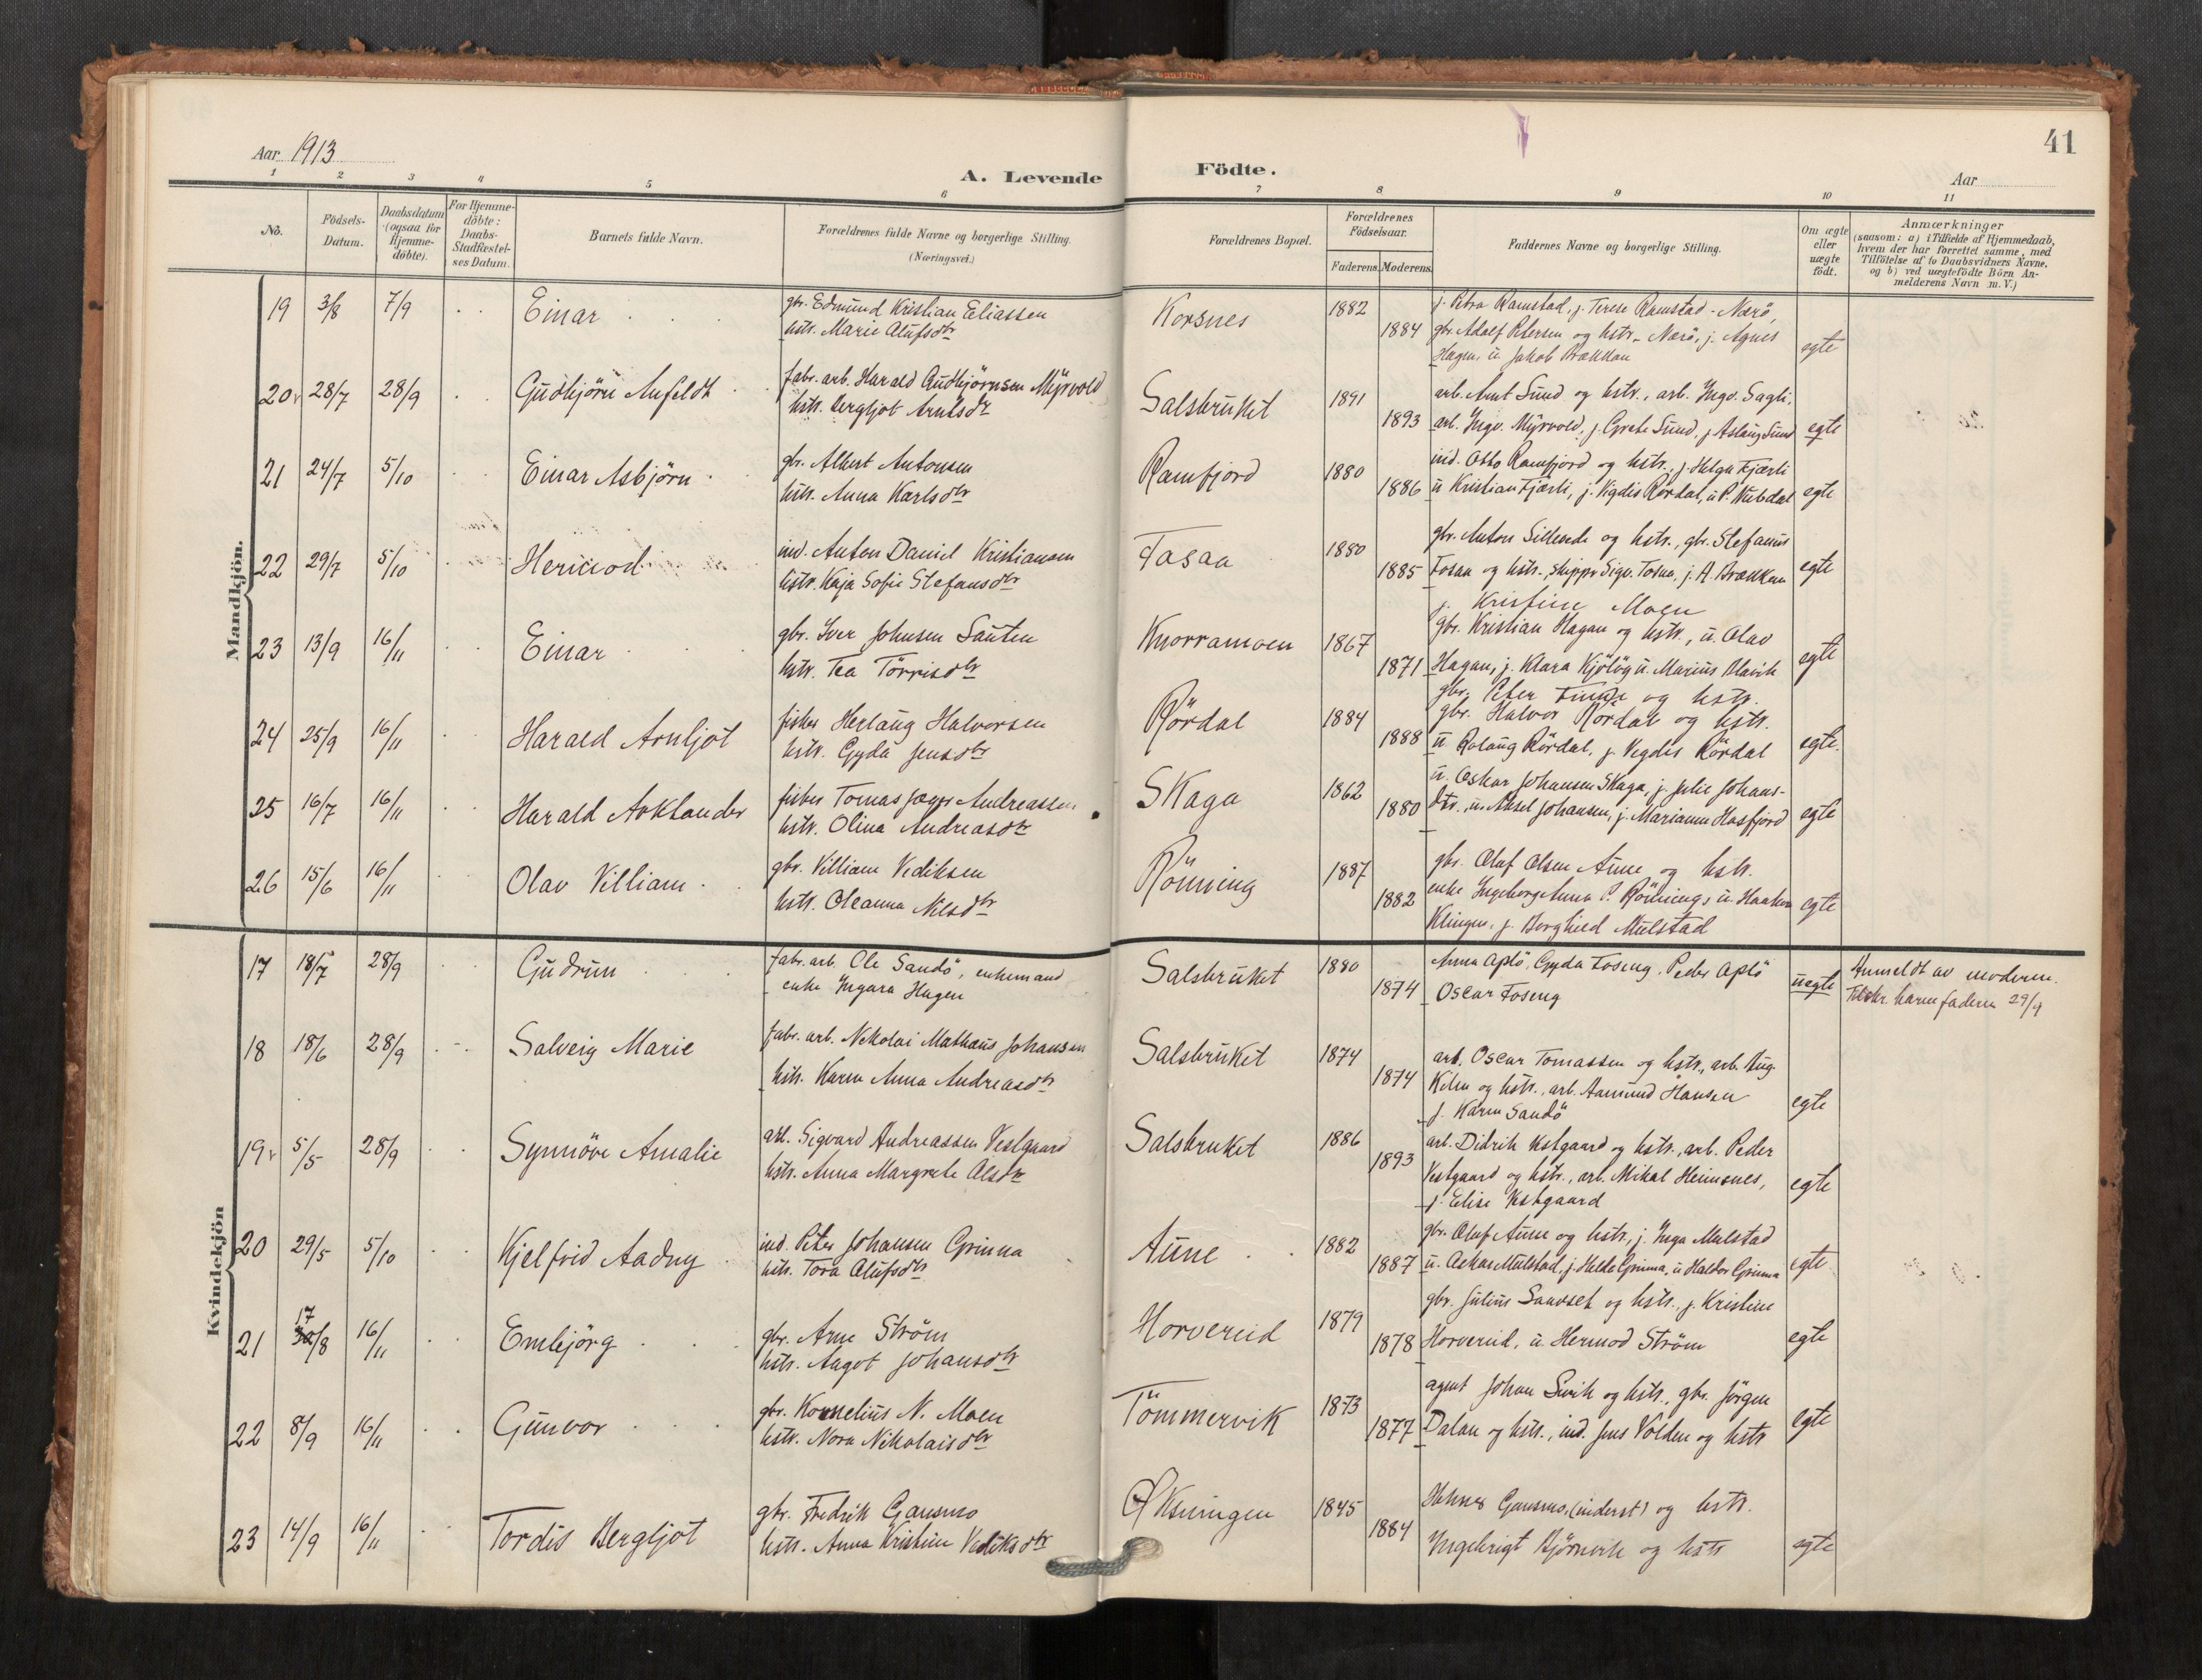 41
Aar 1913
A. Levende Födte.
Aar
1 2 3 4 5 6 7 8 9 10 11
No.
Födsels-
Datum.
Daabsdatum
(ogsaa for
Hjemme-
döbte).
For Hjemme-
döbte:
Daabs-
Stadfæstel-
ses Datum.
Barnets fulde Navn.
Forældrenes fulde Navne og borgerlige Stilling.
(Næringsvei.)
Forældrenes Bopæl.
Forældrenes
Födselsaar.
Faderens. Moderens.
Faddernes Navne og borgerlige Stilling.
Om ægte
eller
uægte
födt.
Anmærkninger
(saasom: a) i Tilfælde af Hjemmedaab,
hvem der har forrettet samme, med
Tilföielse af to Daabsvidners Navne,
og b) ved uægtefödte Börn An-
melderens Navn m. V.)
Mandkjön.
19 3/8 7/9 Einar
gbr. Edmund Kristian Eliassen
hstr. Marie Alufsdtr
Korsnes 1882
1884
j. Petra Ramstad, j. Terese Ramstad - Nærö,
gbr. Adolf Petersen og hstr. - Nærö, j. Agnes
Hagen, u. Jakob Brækkan
egte
20 28/7 28/9 Gudbjörn Aufeldt
fabr. arb. Harald Gudbjörnsen Myrvold
hstr. Bergljot Arntsdtr
Salsbruket 1891
1893
arb. Arnt Sund og hstr., arb. Ingv. Sagli,
arb. Ingv. Myrvold, j. Grete Sund, j Aslaug Sund
egte
21 24/7 5/10 Einar Asbjörn
gbr. Albert Antonsen
hstr. Anna Karlsdtr
Ramfjord 1880
1886
ind. Otto Ramfjord og hstr., j. Helga Fjærli
u Kristian Fjærli, j. Vigdis Rördal, u P. Nubdal
egte
22 29/7 5/10
ind. Anton Daniel Kristiansen
hstr. Kaja Sofie Stefansdtr
Fosaa 1880
1885
gbr. Anton Sillende og hstr., gbr. Stefanus
Fosaa og hstr., skippr Sigv. Fosaa, j. A. Brækkan
j. Kristine Moen
egte
23 13/9 16/11 Einar
gbr. Iver Johnsen Sauten
hstr. Tea Törrisdtr
Knorramoen 1867
1871
gbr. Kristian Hagan og hstr., u. Olav
Hagan, j. Klara Kjölög u. Marius Blavik
gbr. Peter Finne og hstr.
egte
24 25/9 16/11 Harald Arnljot
fisker Herlaug Halvorsen
hstr. Gyda Jensdtr
Rördal 1884
1888
gbr. Halvor Rördal og hstr.
u Rolaug Rördal, j. Vegdis Rördal
egte.
25 16/7 16/11 Harald Arklander
fisker Tomas Jæger Andreassen
hstr. Olina Andreasdtr
Skaga 1862
1880
u. Oskar Johansen Skaga, j. Julie Johans-
dtr. u. Aksel Johansen, j. Marianne Hosfjord
egte
26 15/6 16/11 Olav Villiam
gbr. Villiam Vediksen
hstr. Oleanna Nilsdtr
Rönning 1887
1882
gbr. Oluf Olsen Aune og hstr.
enke Ingeborg Anna P. Rönning, u. Haakon
Klingen, j. Borghild Mulstad
egte
Kvindekjön
17 18/7 28/9 Gudrun
fabr. arb. Ole Sandö, enkemand
enke Ingara Hagen
Salsbruket 1880
1874
Anna Aplö, Gyda Foseng, Peder Aplö
Oscar Foseng
uegte
Anmeldt av moderen.
Tilskr. barnefaderen 29/9
18 18/6 28/9 Salveig Marie
fabr. arb. Nikolai Mathæus Johansen
hstr. Karen Anna Andreasdtr
Salsbruket 1874
1874
arb. Oscar Tomassen og hstr., arb. Aug.
Kilen og hstr., arb. Aamund Hansen
j. Karen Sandö
egte
19 5/5 28/9 Synnöve Amalie
arb. Sigvard Andreassen Vestgaard
hstr. Anna Margrete Olsdtr
Salsbruket 1886
1893
arb. Didrik Vestgaard og hstr., arb. Peder
Vestgaard og hstr., arb. Mikal Heimsnes,
j. Elise Vestgaard
egte
20 29/5 5/10 Kjelfrid Aadny
ind. Peter Johansen Grinna
hstr. Tora Olufsdtr
Aune 1882
1887
gbr. Oluf Aune og hstr., j. Inga Mulstad
u. Oskar Mulstad, j. Helda Grinna, u Haldor Grinna
egte
21 17/8 16/11 Embjörg
gbr. Arne Ström
hstr. Aagot Johansdtr
Horvereid 1879
1878
gbr. Julius Sandset og hstr., j. Kristine
Horvereid, u. Hermod Ström
egte
22 8/9 16/11 Gunvor
gbr. Kornelius N. Moen
hstr. Nora Nikolaisdtr
Tömmervik 1873
1877
agent Johan og hstr., gbr. Jörgen
Dalan og hstr., ind. Jens Volden og hstr
egte
23 14/9 16/11 Tordis Bergljot
gbr. Fredrik Gansmo
hstr. Anna Kristine Vediksdtr
Øksningen 1845
1884
Gansmo, (inderst) og hstr.
Ingebrigt Björnvik og hstr
egte